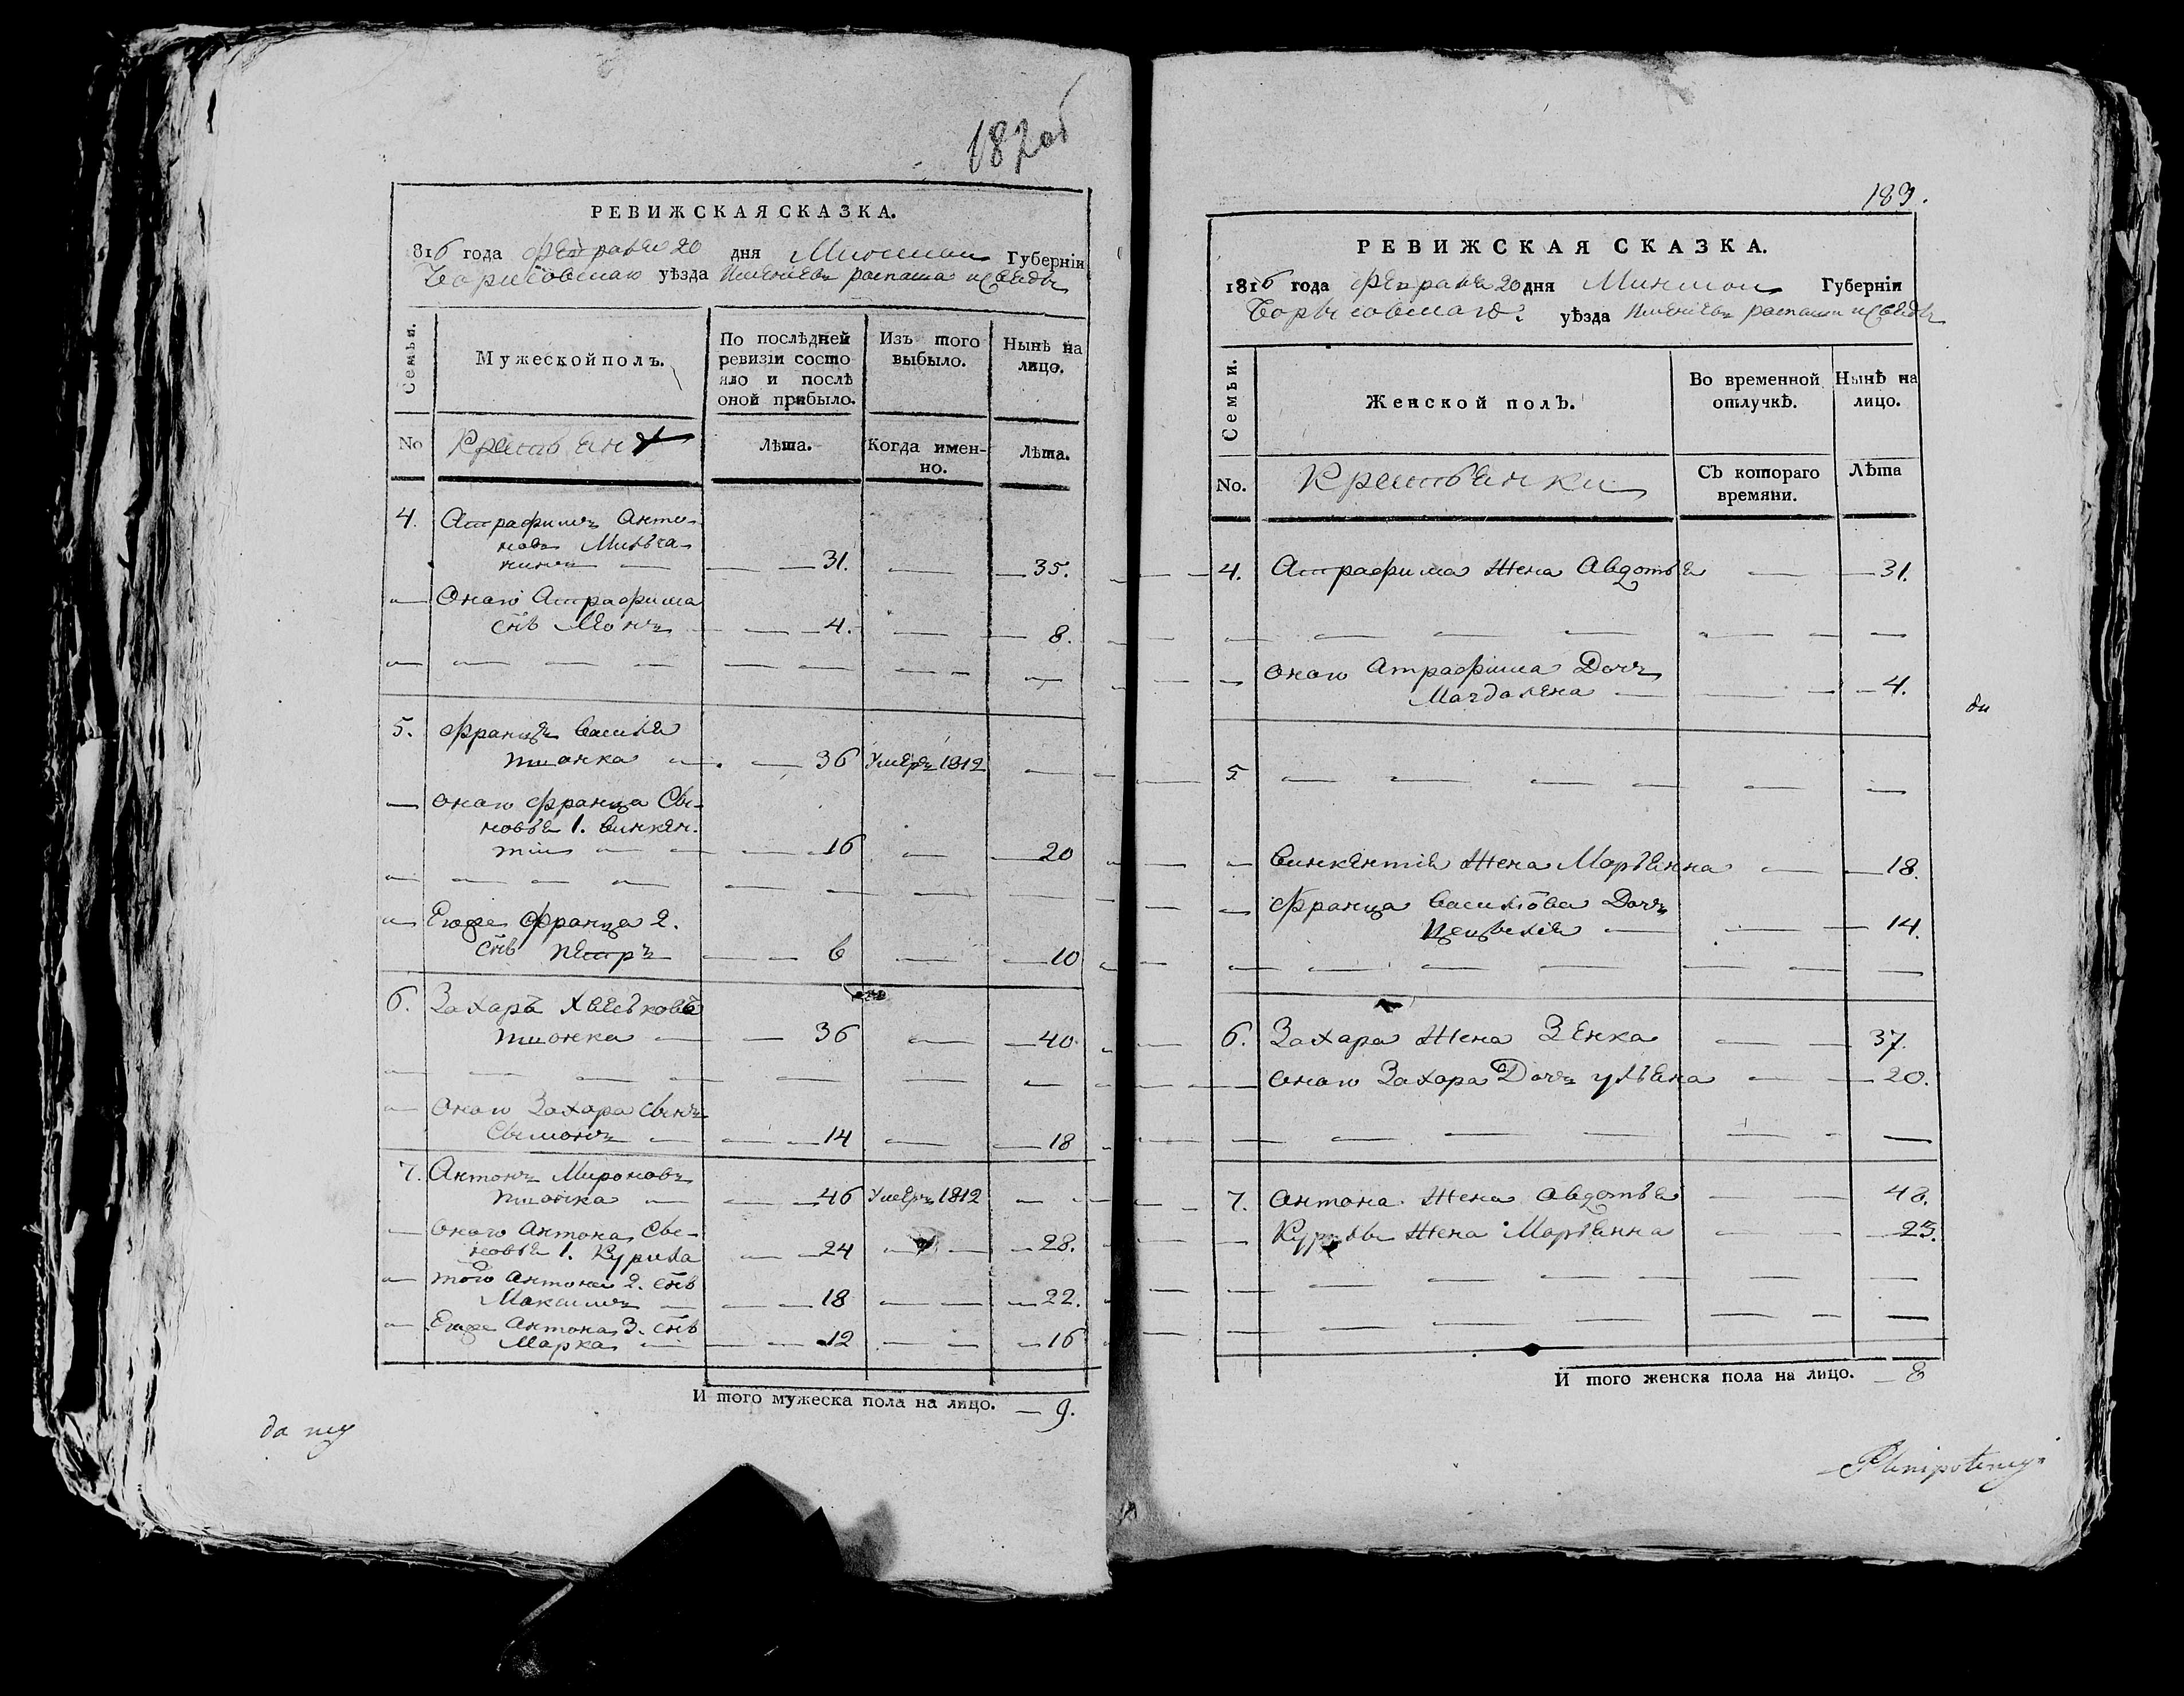 182об
РЕВИЖСКАЯ СКАЗКА.
1816 года февраля 20 дня Минской Губерніи
Борисовскаго уѣзда
Семьи.
Мужеской полъ.
По послѣдней ревизіи состояло и послѣ оной прибыло.
Изъ того выбыло.
Нынѣ на лицо.
No
Крестьяне
Лѣта.
Когда именно.
Лѣта.
4. Атрафимъ Анто-
новъ
— 31. — 35.
Оного Атрафима
снъ — 4. — 8.
5. Францъ
36 Умеръ 1812 —
оного Франца Сы-
новья 1. Винкен-
тій — 16 — 20
Егоже Франца 2.
снъ Петръ — 6 — 10
6. Захаръ
— 36 — 40
Оного Захара сынъ
Сымонъ — 14 — 18
7. Антонъ Мироновъ
— 46 Умеръ 1812 —
оного Антона Сы-
новья 1. Курила — 24 — 28.
того Антона 2. снъ
Максимъ — 18 — 22.
Егоже Антона 3. снъ
Марка — 12 — 16
И того мужеска пола на лицо. — 9.
да
183.
РЕВИЖСКАЯ СКАЗКА.
1816 года февраля 20 дня Минской Губерніи
Борысовскаго уѣзда
Семьи.
Женской полъ.
Во временной отлучкѣ.
Нынѣ на лицо.
No.
Крестьянки
Съ котораго времяни.
Лѣта
4. Атрафима Жена Авдотья — 31.
оного Атрафима Дочъ
Магдалена — 4.
5
Винкентія Жена Марьянна — 18.
Франца Дочъ
Цецылія — 14.
6. Захара Жена Зенка — 37.
оного Захара Дочъ Ульяна — 20.
7. Антона Жена Авдотья — 40.
Курилы Жена Марьянна — 23.
И того женска пола на лицо. — 8